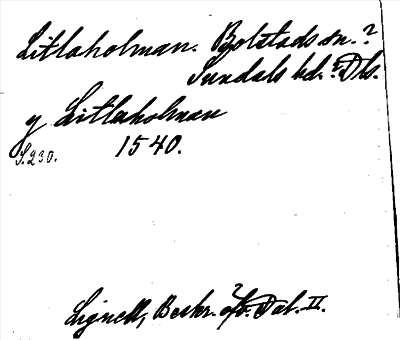 Litlaholman. Bolstads sn.?
Sundals hd. Dls.
y Litlaholman
S. 230. 1540.
Lignell, Beskr. öfv. Dal. II.